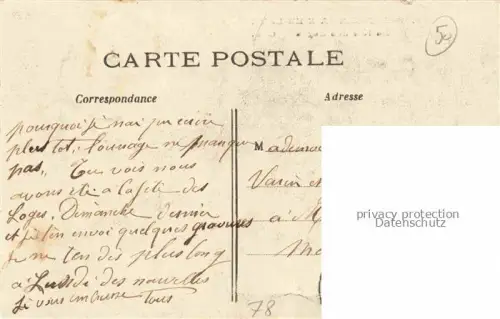 CARTE POSTALE
50
Correspondance
Adresse
pourquoi je n'ai pu écrire
plus tot, l'ouvrage ne manque
pas, Tu vois nous
avons été a la fete des
Loges, Dimanche dernier
et je t'en envoi quelques gravures
Je ne t'en dis plus long
a Lundi des nouvelles
Je vous embrasse Tous
M
ademoi
Varin
à M
78
privacy protection
Datenschutz